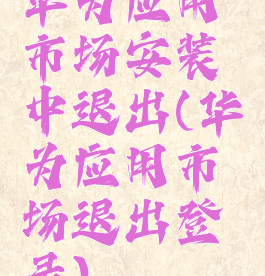 华为应用
市场安装
中退出(华
为应用市
场退出登
录)